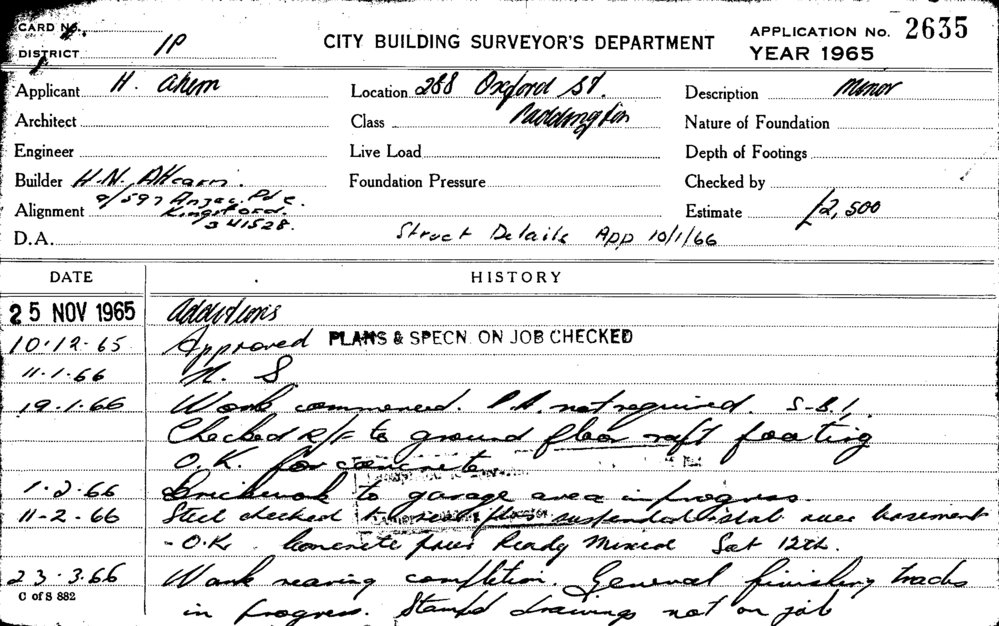 CARD No.
DISTRICT 1P
CITY BUILDING SURVEYOR'S DEPARTMENT
APPLICATION No. 2635
YEAR 1965
Applicant H. Ahern
Location 288 Oxford St.
Description Minor
Architect
Class Paddington
Nature of Foundation
Engineer
Live Load
Depth of Footings
Builder H.N. Ahearn.
Foundation Pressure
Checked by
9/597 Anzac Pde.
Alignment Kingsford.
341528.
Estimate £2,500
D.A.
Struct Details App 10/1/66
DATE HISTORY
25 NOV 1965 Additions
10.12.65 Approved PLANS & SPECN. ON JOB CHECKED
11.1.66 N. S
19.1.66 Work commenced. P.A. not required. S-B.1.
Checked R/F to ground floor raft footing
O.K. for concrete
1.2.66 Brickwork to garage area in progress.
11-2.66 Steel checked suspended slab over basement
- O.K. Concrete pour Ready Mixed Sat 12th.
23.3.66 Work nearing completion. General finishing trades
C of S 882
in progress. Stamped drawings not on job